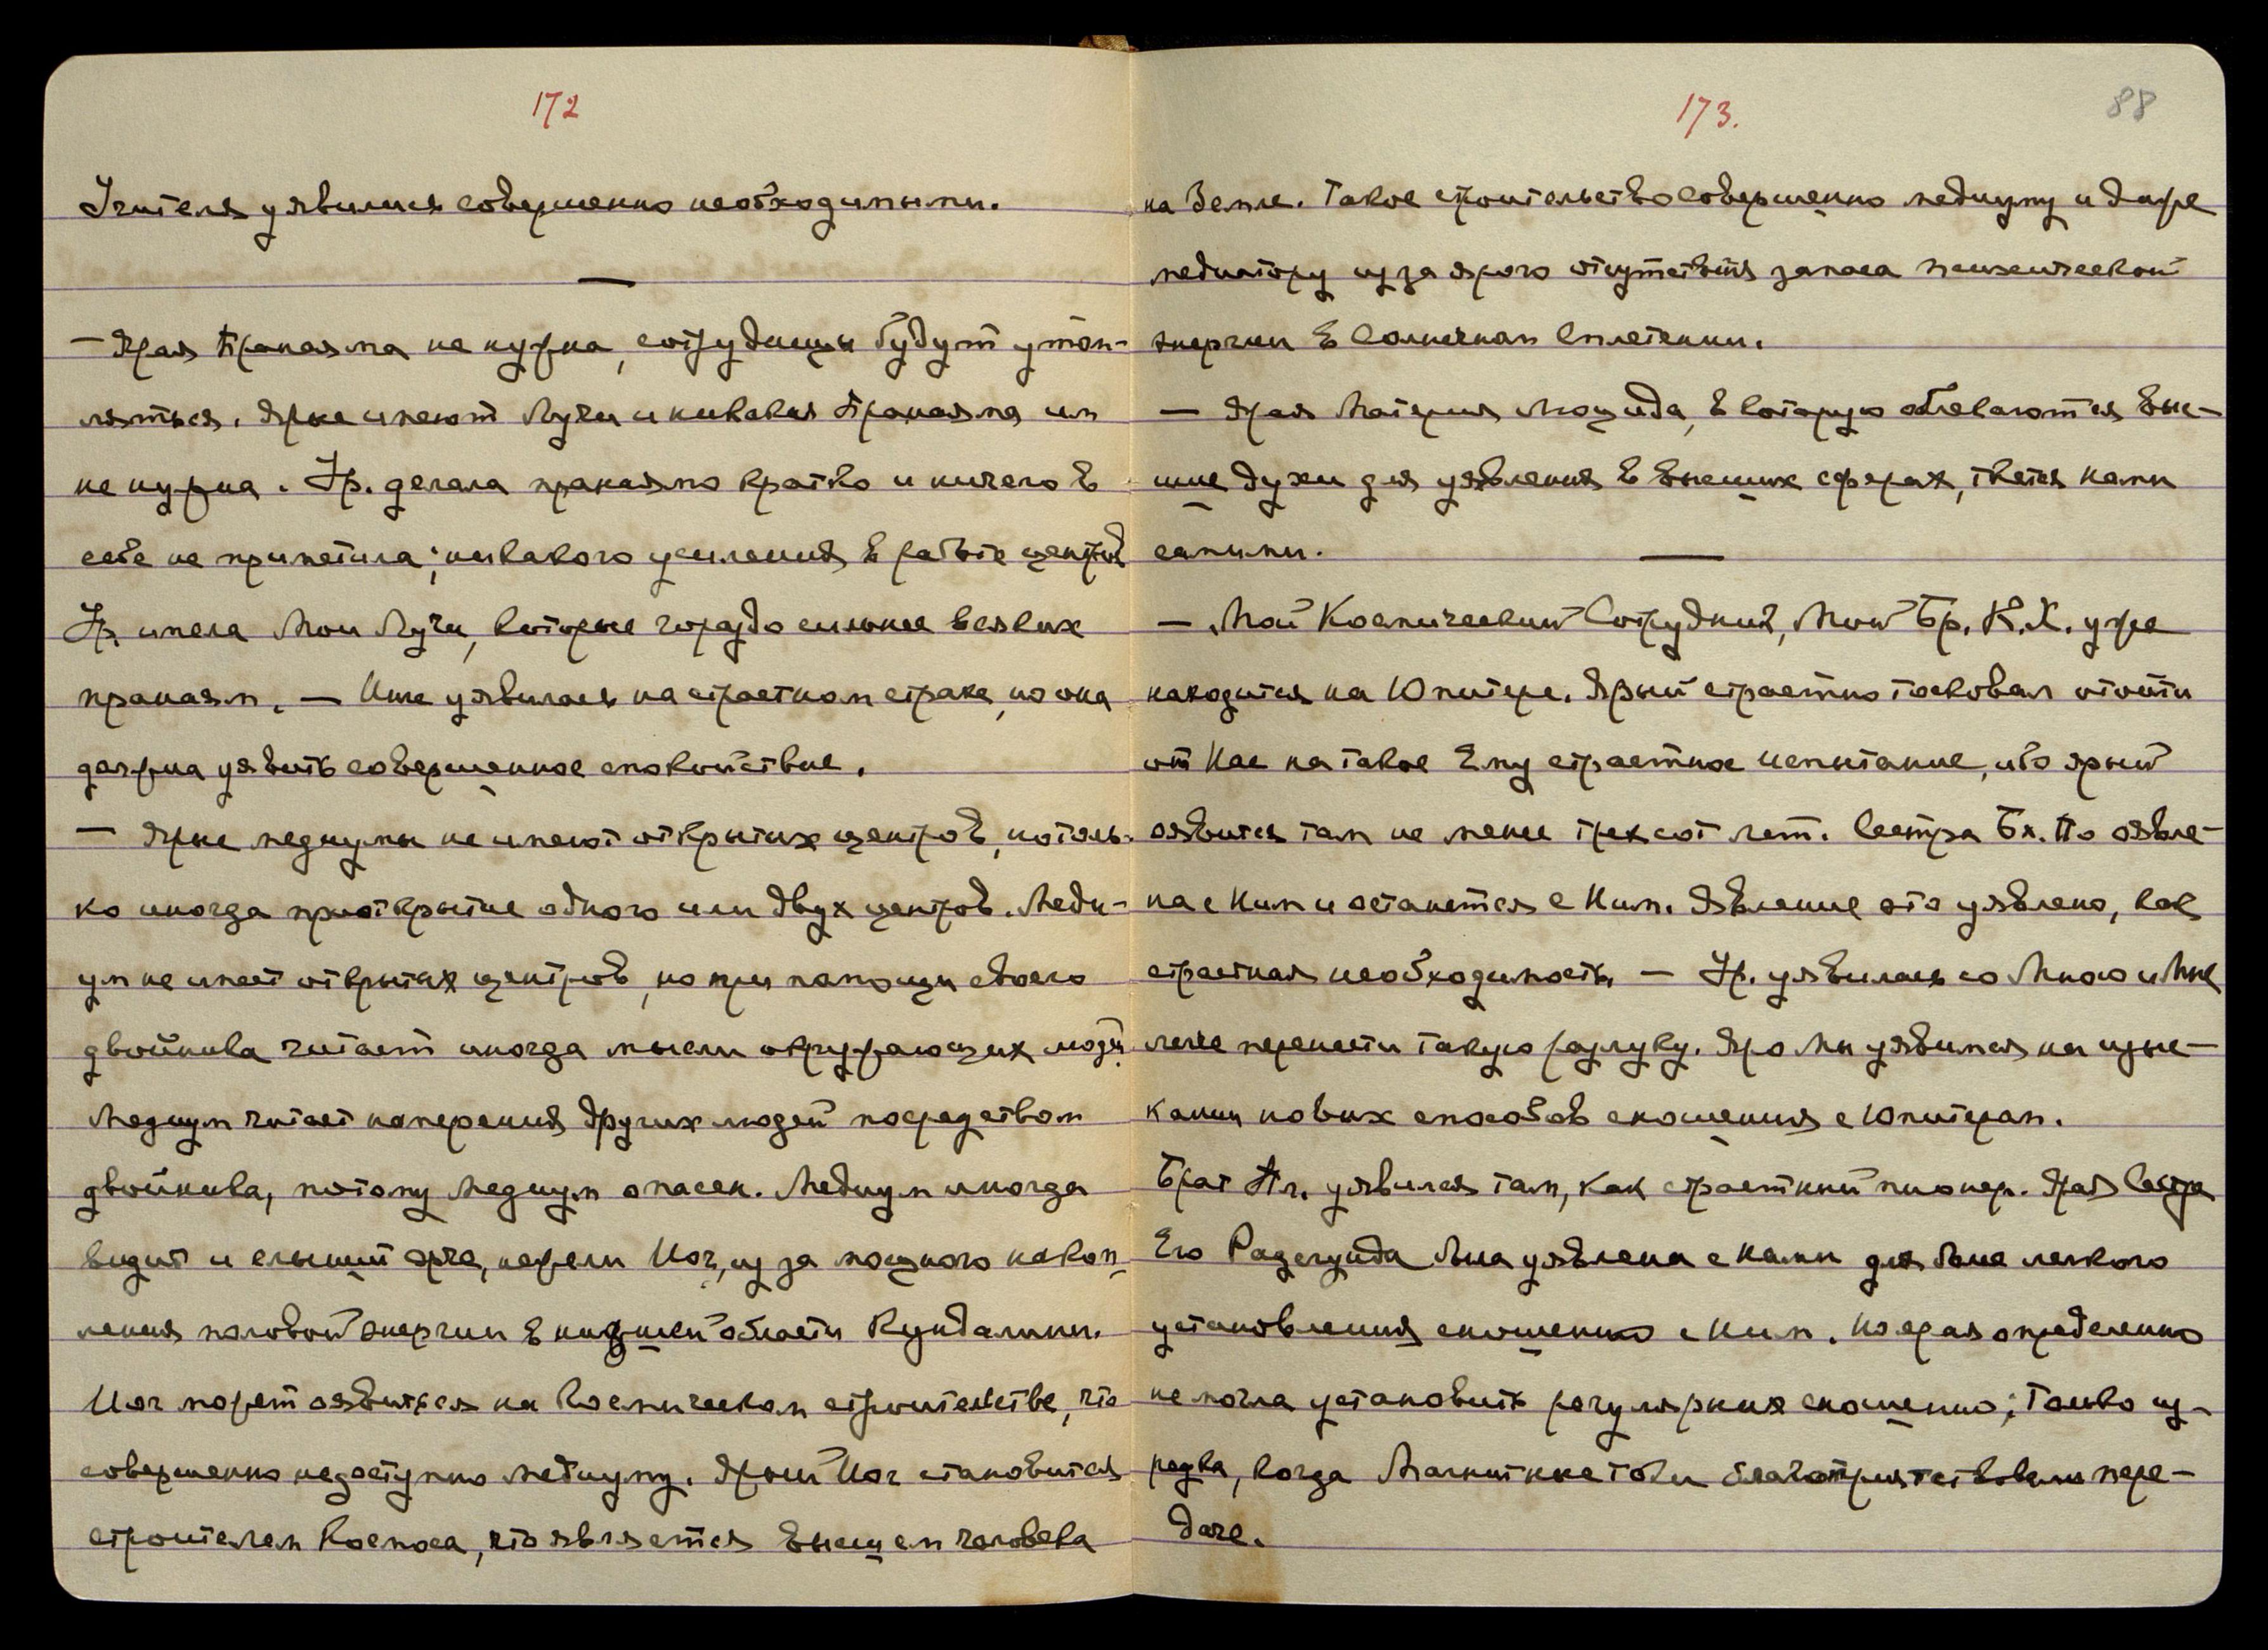 172
Учителя уявился совершенно необходимыми.
— Ярая Пранаяма не нужна, сотрудницы будут утом-
ляться. Ярые имеют Лучи и никакая Пранаяма им
не нужна. Ур. делала пранаяму кратко и ничего в
себе не приметила; никакого усиления в работе центров
Ур. имела Мои Лучи, которые гораздо сильнее всяких
пранаям. — Инге уявилась на страстном страхе, но она
должна уявить совершенное спокойствие.
— Ярые медиумы не имеют открытых центров, но толь-
ко иногда приоткрытие одного или двух центров. Меди-
ум не имеет открытых центров, но при помощи своего
двойника читает иногда мысли окружающих людей.
Медиум читает намерения других людей посредством
двойника, потому медиум опасен. Медиум иногда
видит и слышит ярче, нежели Йог, из за мощного накоп-
ления половой энергии в низшей области Кундалини.
Йог может оявиться на Космическом строительстве, что
совершенно недоступно медиуму. Ярый Йог становится
строителем Космоса, что является высшем человека
173.
88
на Земле. Такое строительство совершенно медиуму и даже
медиатору из за ярого отсутствия запаса психической
энергии в Солнечном Сплетении.
— Ярая Материя Люцида, в которую облекаются Выс-
шие духи для уявления в высших сферах, ткётся нами
самими.
— Мой Космический Сотрудник, Мой Бр. К.Х. уже
находится на Юпитере. Ярый страстно тосковал отойти
от Нас на такое Ему страстное испытание, ибо ярый
оявится там не менее трех сот лет. Сестра Бл. По оявле-
на с Ним и останется с Ним. Явление это уявлено, как
страстная необходимость. — Ур. уявилась со Мною и Мне
легче перенести такую разлуку. Яро Мы уявимся на изыс-
кании новых способов сношения с Юпитером.
Брат Пл. уявился там, как страстный пионер. Ярая Сестра
Его Радегунда была уявлена с Нами для более легкого
установления сношению с Ним. Но ярая определенно
не могла установить регулярных сношению; только из-
редка, когда Магнитные токи благоприятствовали пере-
даче.